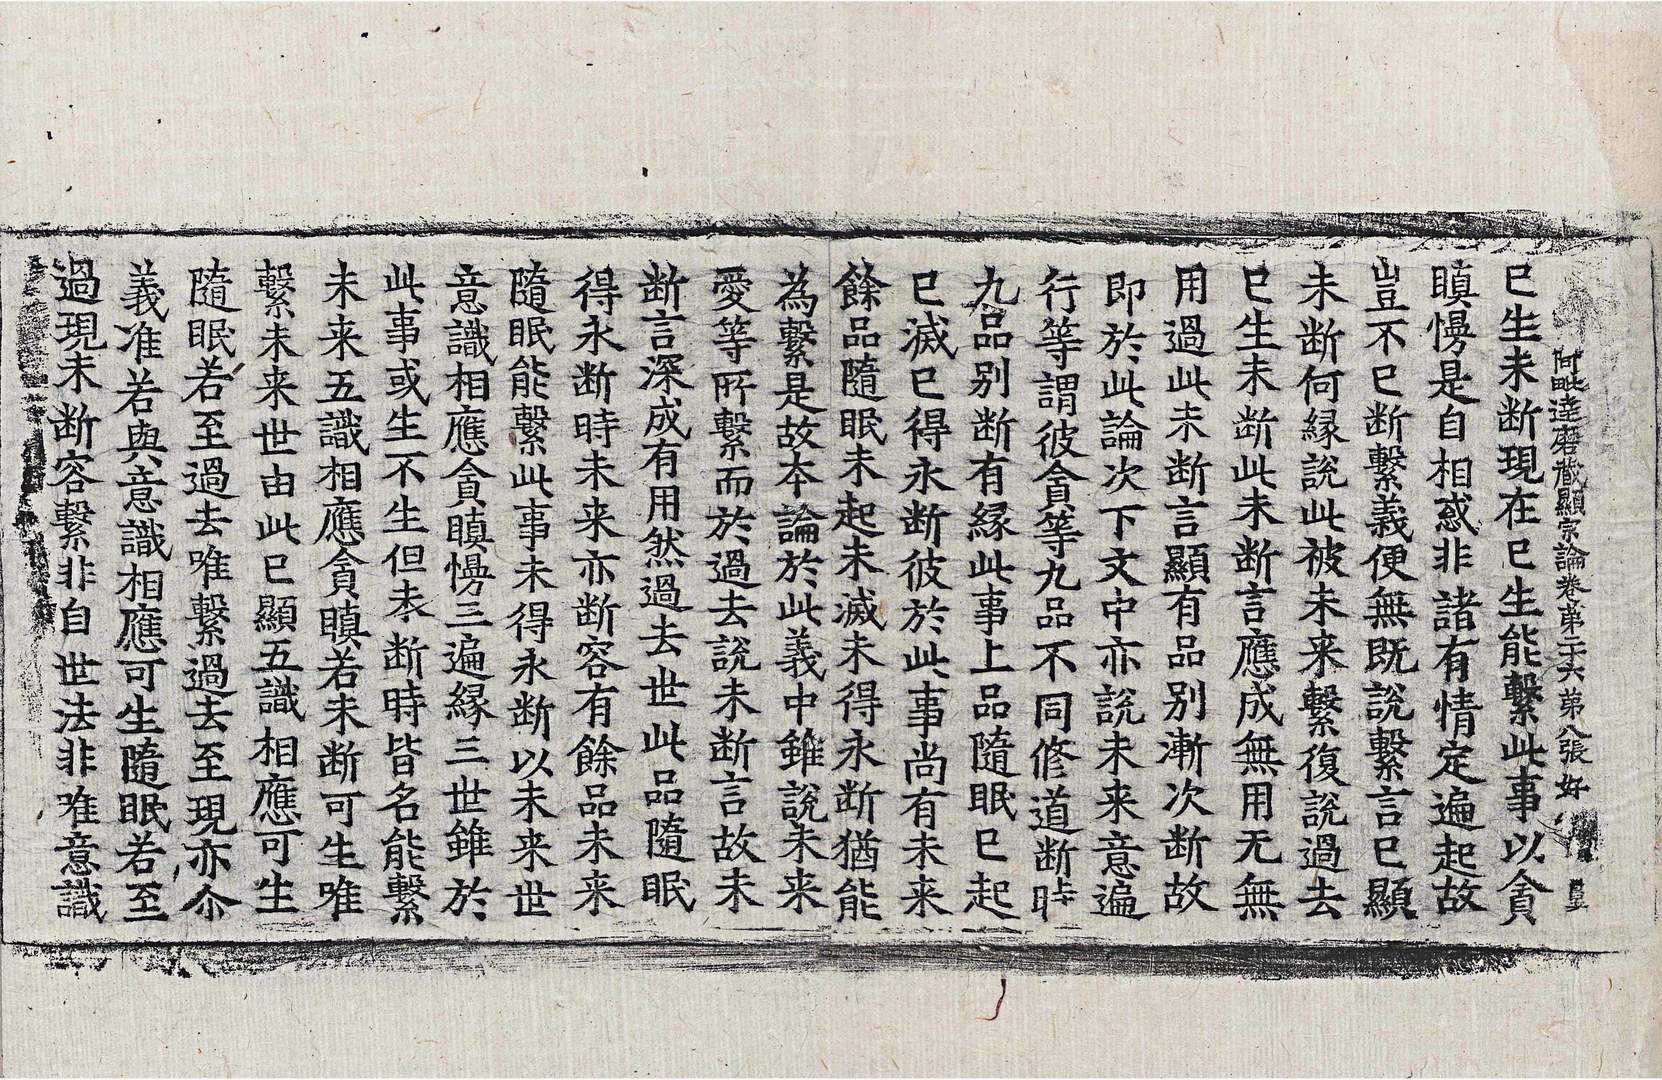 阿毗達磨藏顯宗論卷第二十六 第八張 好
已生未断現在已生能繫此事以貪
瞋慢是自相惑非諸有情定遍起故
豈不已断繫義便無既說繫言已顯
未断何縁說此被未来繫復說過去
已生未断此未断言應成無用无無
用過此未断言顯有品别漸次断故
即於此論次下文中亦說未来意遍
行等謂彼貪等九品不同修道断時
九品别断有縁此事上品隨眠已起
已滅已得永断彼於此事尚有未来
餘品隨眠未起未滅未得永断猶能
為繫是故本論於此義中雖說未来
愛等所繫而於過去說未断言故未
断言深成有用然過去世此品隨眠
得永断時未来亦断容有餘品未来
隨眠能繫此事未得永断以未来世
意識相應貪瞋慢三遍縁三世雖於
此事或生不生但未断時皆名能繫
未来五識相應貪瞋若未断可生唯
繫未来世由此已顯五識相應可生
隨眠若至過去唯繫過去至現亦尒
義准若與意識相應可生隨眠若至
過現未断容繫非自世法非唯意識